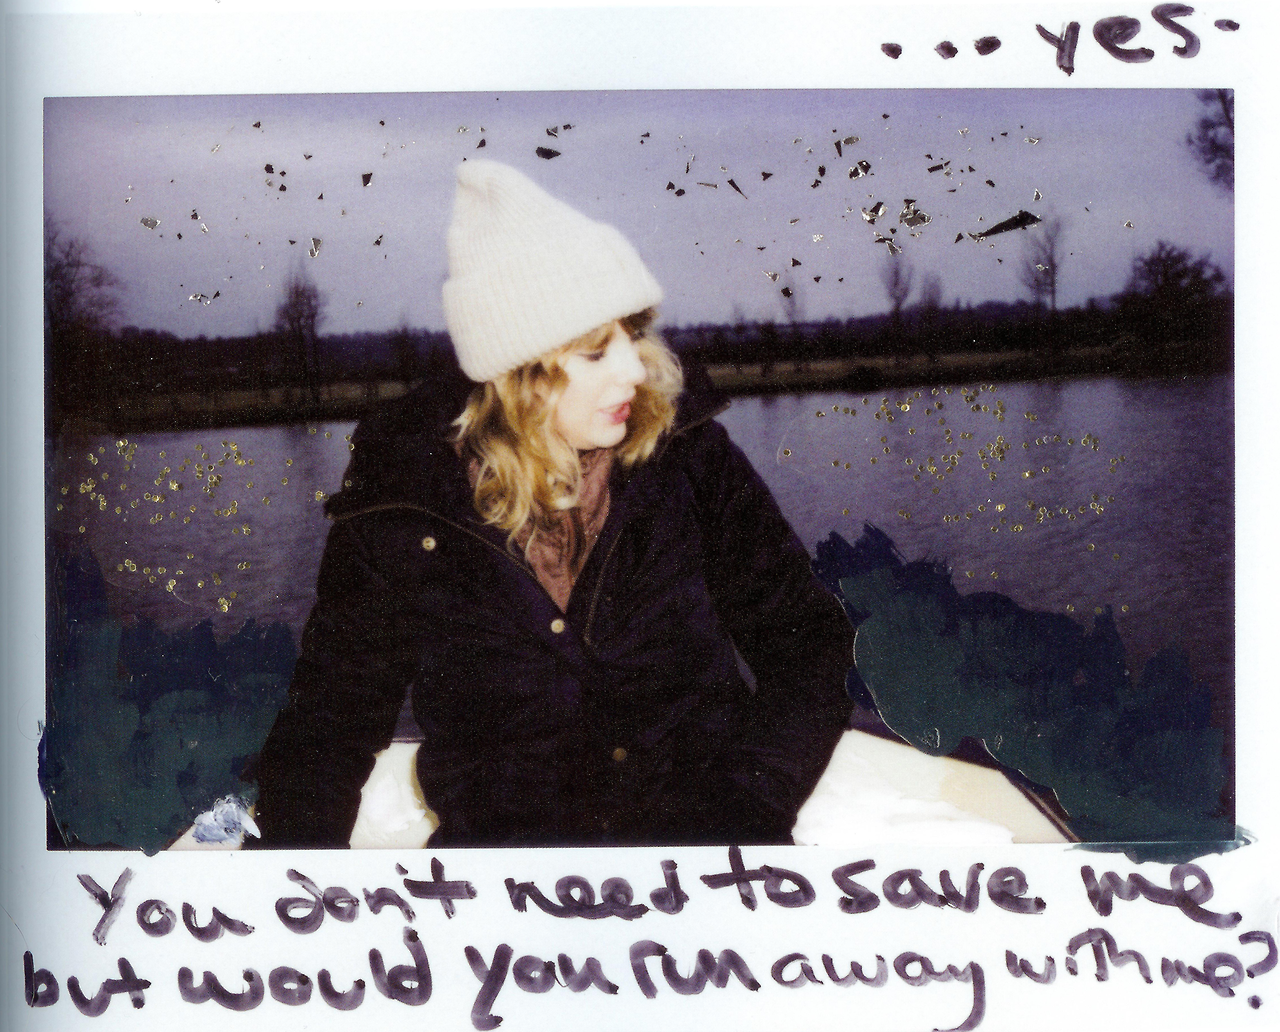 ... yes-
You don't need to save me
but would you run away with me?